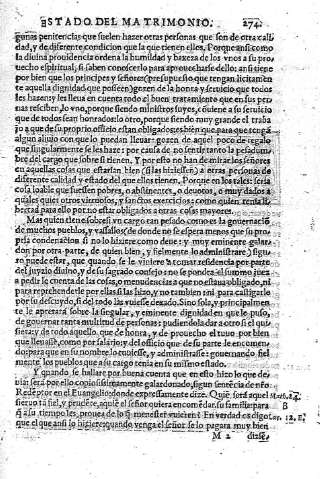 ESTADO DEL MATRIMONIO. 274.
gunas penitencias que suelen hazer otras personas que son de otra cali
dad, y de diferente condicion que la que tienen ellos. Porque ansi como
la divina providencia ordena la humildad y baxeza de los vnos a su pro
uecho espiritual, si saben conocerlo para aprouecharse dello: ansi tiene
por bien que los principes y señores (presupuesto que tengan licitamen
te aquella dignidad que posseen) gozen de la honra y seruicio que todos
les hazen: y les lleua en cuenta todo el buen tratamiento que en sus per
nas resciben, lo vno, porque siendo ministros suyos, conuiene a su seruicio
que de todos sean honrados: lo otro, porque siendo muy grande el traba
jo a que de su proprio officio estan obligados: es bien que para que tengã
algun aliuio con que lo puedan lleuar: gozen de aquel poco de regalo
que singularmente se les haze: por causa de no sentir tanto la pesadum
bre del cargo que sobre si tienen. Y por esto no han de mirar los señores
en aquellas cosas que estarian bien (si las hiziessen) a otras personas de
diferente calidad y estado del que ellos tienen. Porque en los tales: seria
cosa loable que fuessen pobres, o abstinentes, o deuotos, o muy dados a
quales quier otros virtuosos, y sanctos exercicios: como quien tenia li
bertad para ello por no estar obligados a otras cosas mayores.
Mas quien tiene sobre si vn cargo tan pesado como es la gouernaciõ
de muchos pueblos, y vassallos (de donde no se espera menos que su pro
pria condenacion si no lo hiziere como deue: y muy eminente galar
don por otra parte, de quien bien, y fielmente lo administrare) segu
ro puede estar, que quando se le viniere a tomar residencia por parte
del juyzio diuino, y de su sagrado consejo: no se pondra el summo juez
a pedir le cuenta de las cosas, o menudencias a que no estaua obligado, ni
para reprehenderle por ellas si las hizo, y no tambien para castigarle
por su descuydo, si del todo las vuiesse dexado. Sino sola, y principalmen
te le apretara sobre la singular, y eminente dignidad en que le puso,
de gouernar tanta multitud de personas: pudiendola dar a otro si el qui
siera: y de todo aquello, que de honra, y de prouecho el tuuo por bien
que lleuasse, como por salario: y del officio que de su parte le encomen
do: para que en su nombre lo tuuiesse, y administrasse: gouernando fiel
mente los pueblos que a su cargo tenia en su mismo estado.
Y quando se hallare por buena cuenta que en esto hizo lo que de
uia: sera por ello copiosissimamente galardonado, segun sentencia de nro
Redeptor en el Euangelio: donde expressamente dize. Quiẽ sera aquel Math. 24.
sieruo tã fiel, y prudẽte, aquiẽ el señor quiera encomẽdar su familia: para B
q̃ a su tiempo les prouea de lo q̃ menester vuieren? En verdad os digo Luc. 12. E
que el que ansi lo hiziere: quando venga el señor se lo pagara muy bien
M 2 dizie.